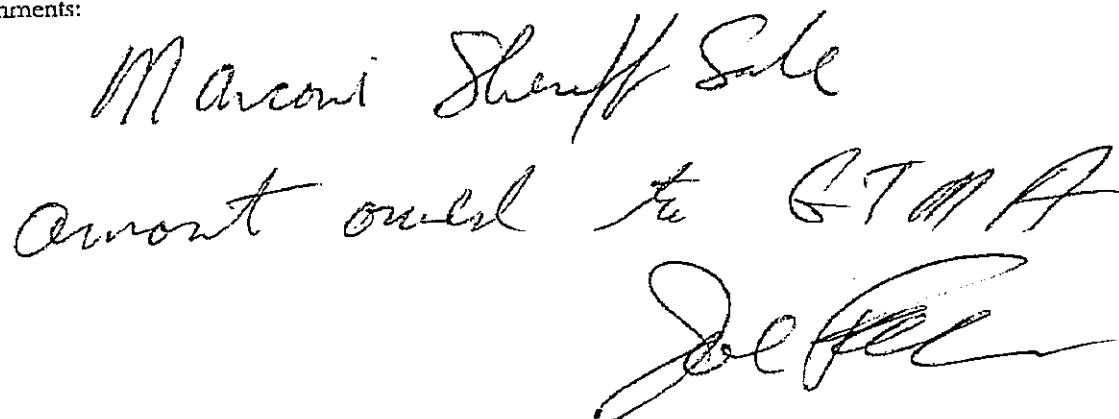 nments:
Marconi Sheriff Sale
amont owed to GTMA
Joe